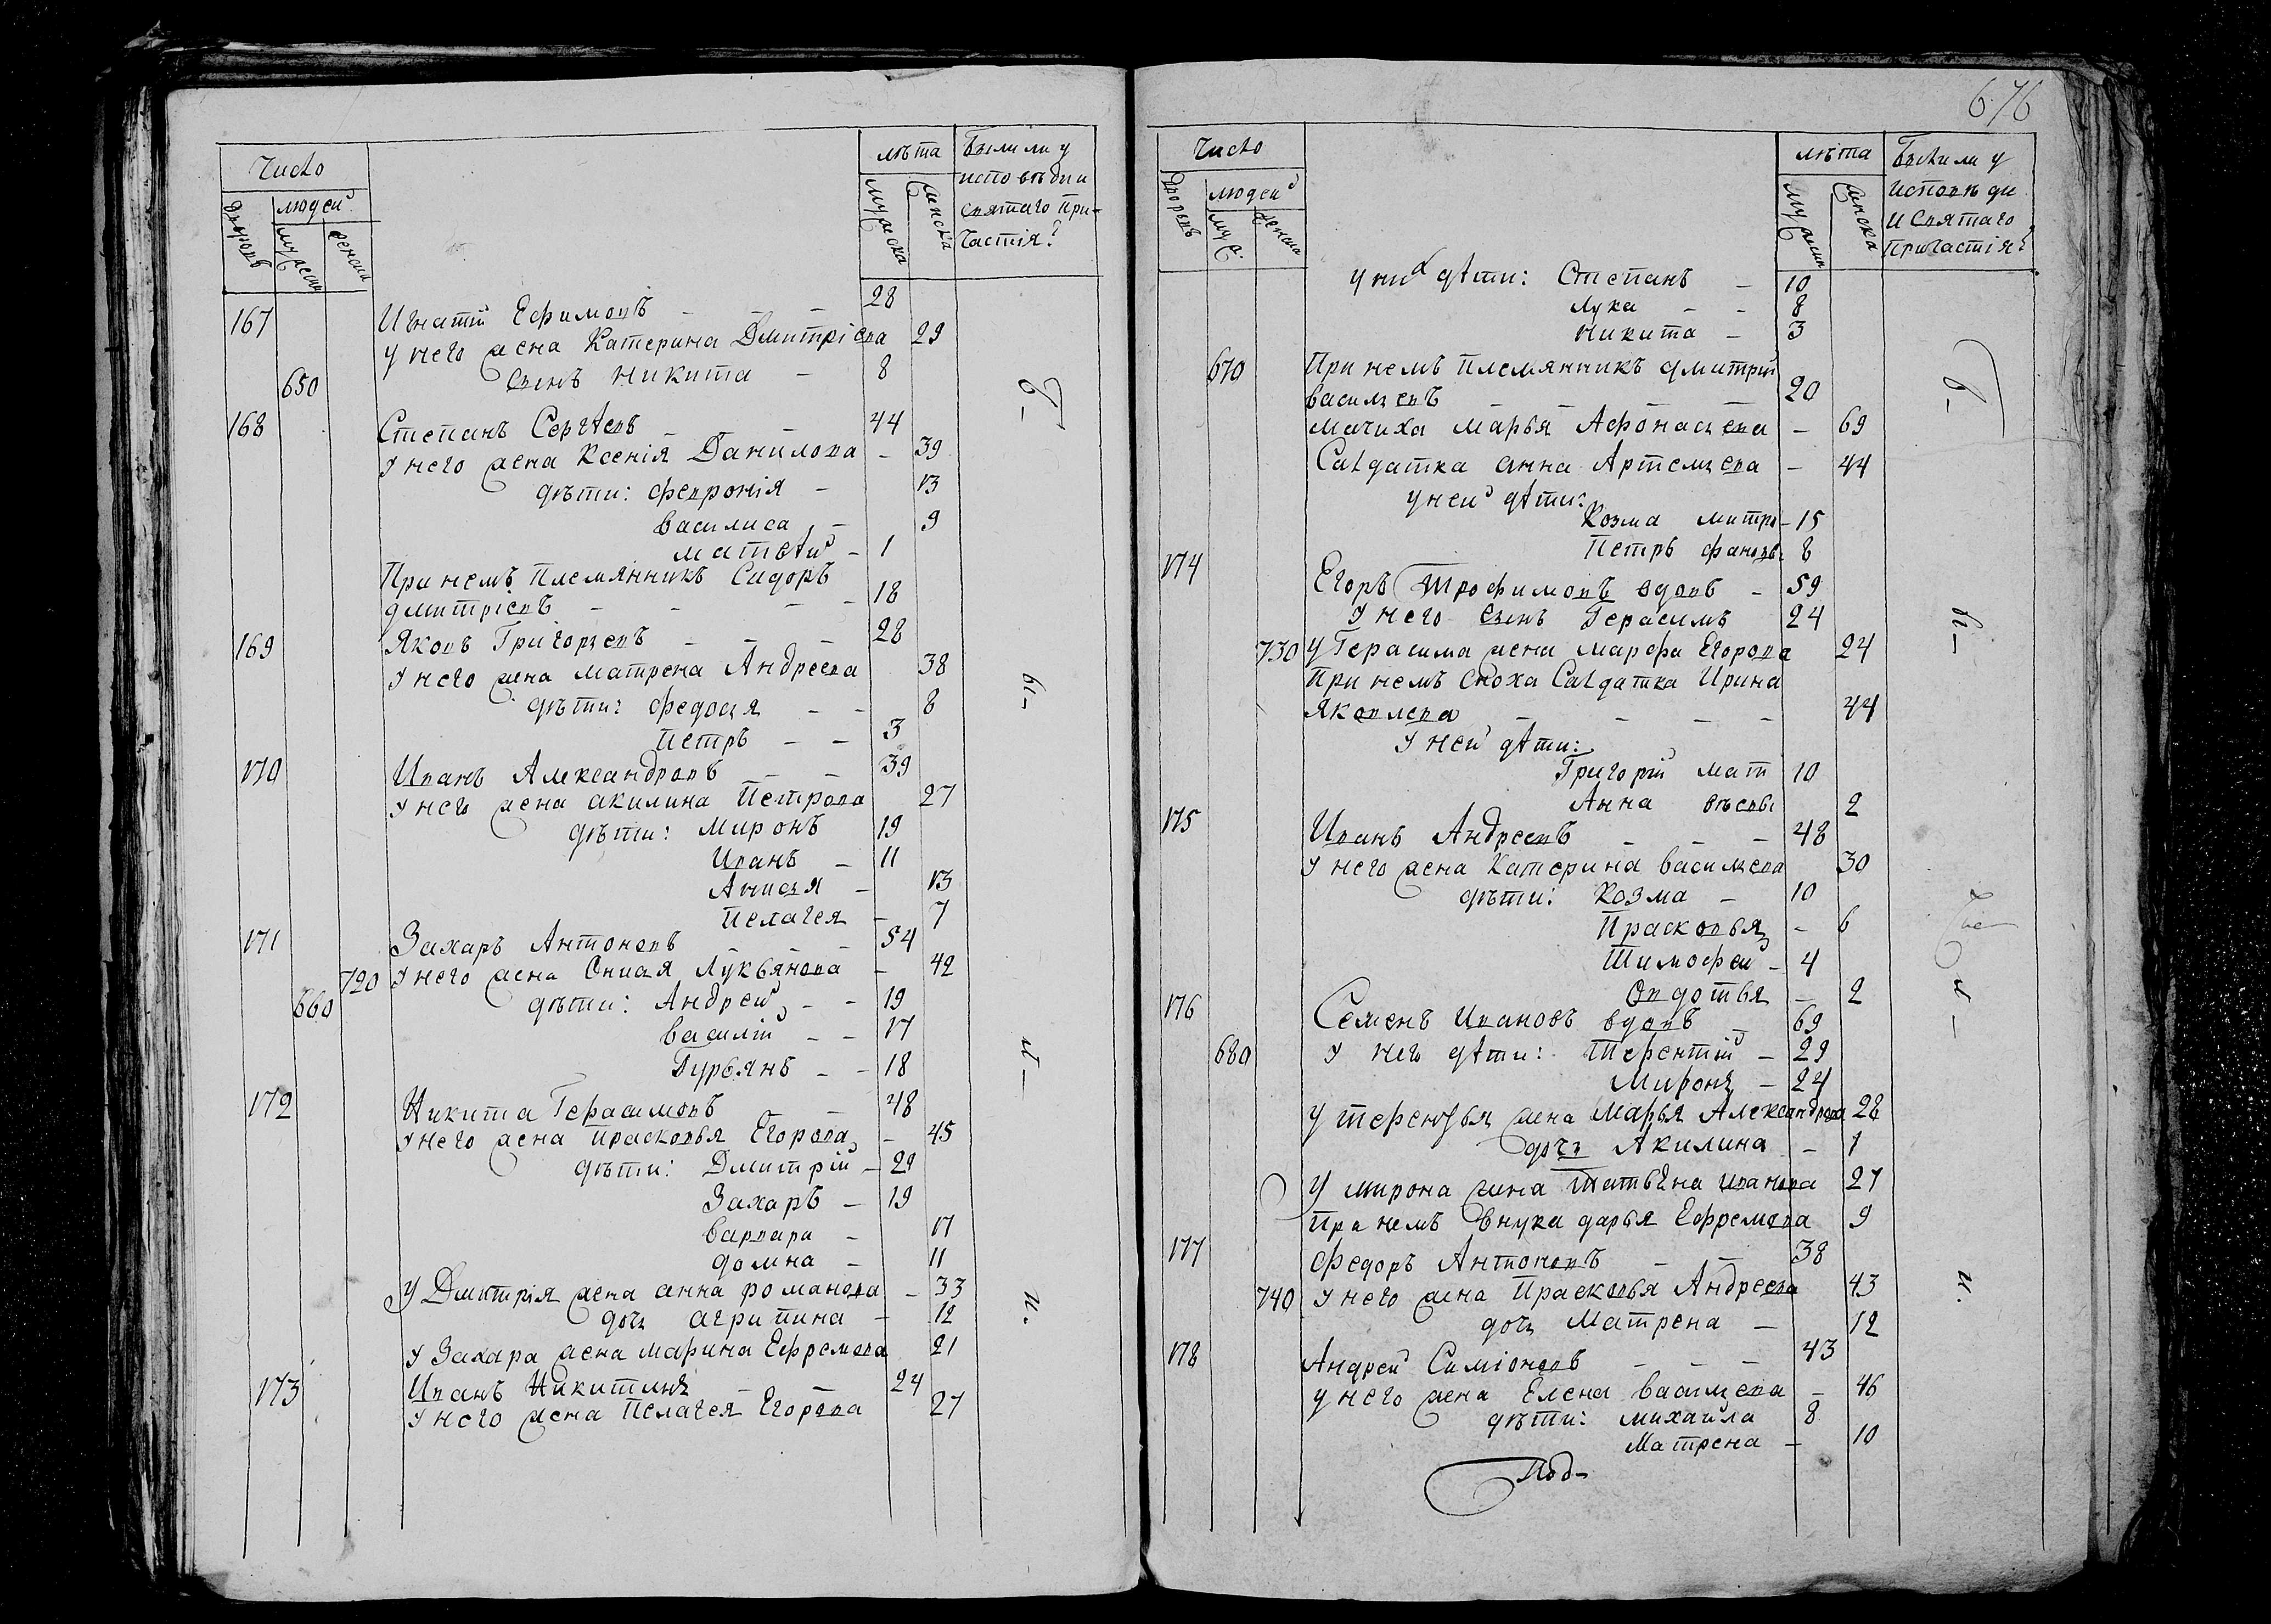 Число
лѣта
Были ли у
исповѣди и
святаго При-
частія?
дворовъ
людей
мужеска
женска
мужеска
женска
167 Игнатій Ефимовъ - - - 28
у него жена Катерина Дмитріева 29
650 сынъ Никита - 8
168 Степанъ Сергѣевъ - - 44
У него жена Ксенія Данилова - 39
дѣти: Февронія - 13
Василиса - 9
Матвѣй - 1
При немъ племянникъ Сидоръ
Дмитріевъ - - - - 18
169 Яковъ Григорьевъ - - - 28
У него жена Матрена Андреева 38
дѣти: Федосья - - 8
Петръ - - 3
170 Иванъ Александровъ - - 39
У него жена Акилина Петрова 27
дѣти: Миронъ 19
Иванъ - 11
Анисья - 13
Пелагея - 7
171 Захаръ Антоновъ - - - 54
720 У него жена Онисья Лукьянова - 42
660 дѣти: Андрей - - 19
Василій - - 17
Гурьянъ - - 18
172 Никита Герасимовъ - 48
У него жена Прасковья Егорова - 45
дѣти: Дмитрій - 29
Захаръ - 19
Варвара - 17
Домна - 11
У Дмитрія жена Анна Романова - 33
дочь Агрипина - 12
У Захара жена Марина Ефремова 21
173 Иванъ Никитинъ - - 24
У него жена Пелагея Егорова 27
676
Число
лѣта
Были ли у
Исповѣди
и Святаго
Причастія?
дворовъ
людей
муж.
женска
женска
у нихъ дѣти: Степанъ - 10
Лука - - 8
Никита - 3
670 При немъ племянникъ Дмитрій
Васильевъ - - - - 20
мачиха Марья Афонасьева - 69
Салдатка Анна Артемьева - 44
у ней дѣти:
Козма митро - 15
Петръ фановъ 8
174 Егоръ Трофимовъ вдовъ - 59
У него сынъ Герасимъ 24
730 У Герасима жена Марфа Егорова 24
При немъ сноха Салдатка Ирина
Яковлева - - - - 44
У ней дѣти:
Григорій мат 10
Анна вѣевы 2
175 Иванъ Андреевъ - - - 48
У него жена Катерина Васильева 30
дѣти: Козма - 10
Прасковья - 6
Тимофей - 4
Овдотья - 2
176 Семенъ Ивановъ вдовъ - 69
680 У него дѣти: Терентій - 29
Миронъ - 24
У Терентья жена Марья Александрова 28
дочь Акилина - 1
У Мирона жена Татьяна Иванова 27
При немъ внука Дарья Ефремова 9
177 Федоръ Антоновъ - - 38
740 У него жена Прасковья Андреева 43
дочь Матрена - 12
178 Андрей Симіоновъ - - - 43
у него жена Елена Васильева - 46
дѣти: Михайла 8
Матрена - 10